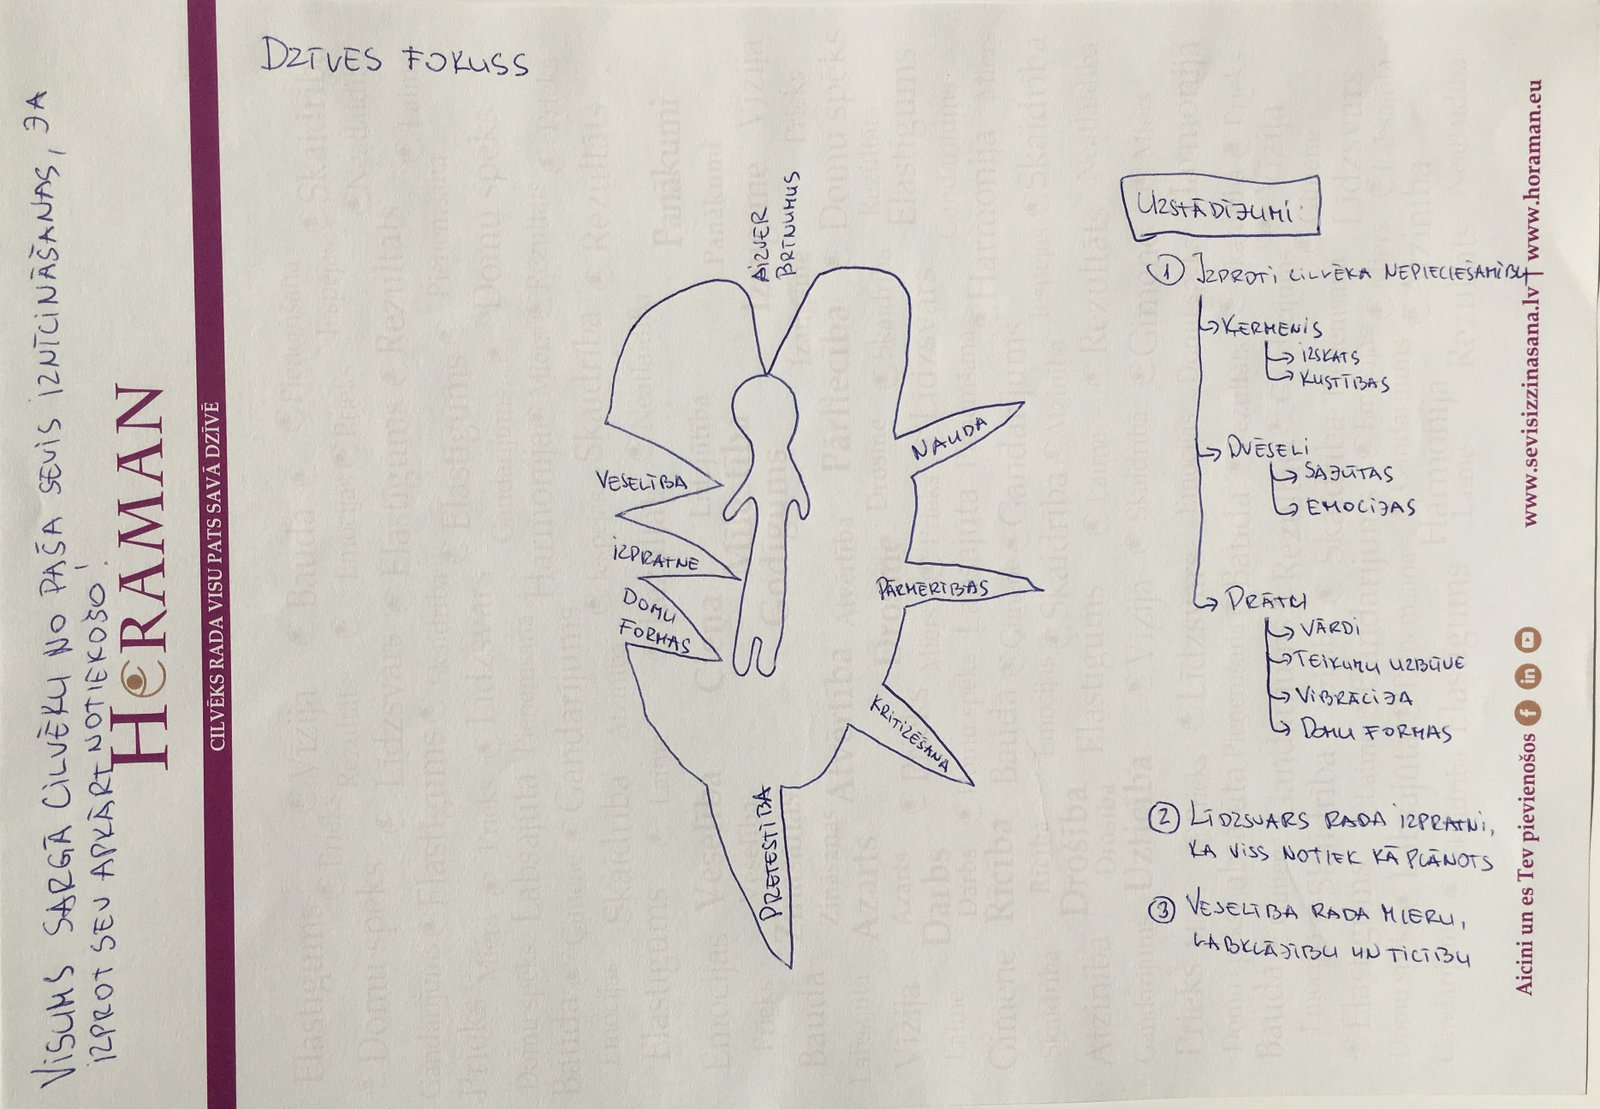 DZĪVES FOKUSS
VISUMS SARGĀ CILVĒKU NO PAŠA SEVIS IZNĪCINĀŠANAS, JA
IZPROT SEV APKĀRT NOTIEKOŠO!
HORAMAN
CILVĒKS RADA VISU PATS SAVĀ DZĪVĒ
AIZVER
BRĪNUMUS
VESELĪBA
IZPRATNE
DOMU
FORMAS
NAUDA
PĀRMERĪBAS
KRITIZĒŠANA
PRETESTĪBA
UZSTĀDĪJUMI
1 IZPROTI CILVĒKA NEPIECIEŠAMĪBU
ĶERMENIS
IZSKATS
KUSTĪBAS
DVĒSELI
SAJŪTAS
EMOCIJAS
PRĀTU
VĀRDI
TEIKUMU UZBŪVE
VIBRĀCIJA
DOMU FORMAS
2 LĪDZSVARS RADA IZPRATNI,
KA VISS NOTIEK KĀ PLĀNOTS
3 VESELĪBA RADA MIERU,
LABKLĀJĪBU UN TICĪBU
Aicini un es Tev pievienošos
www.sevisizzinasana.lv | www.horaman.eu